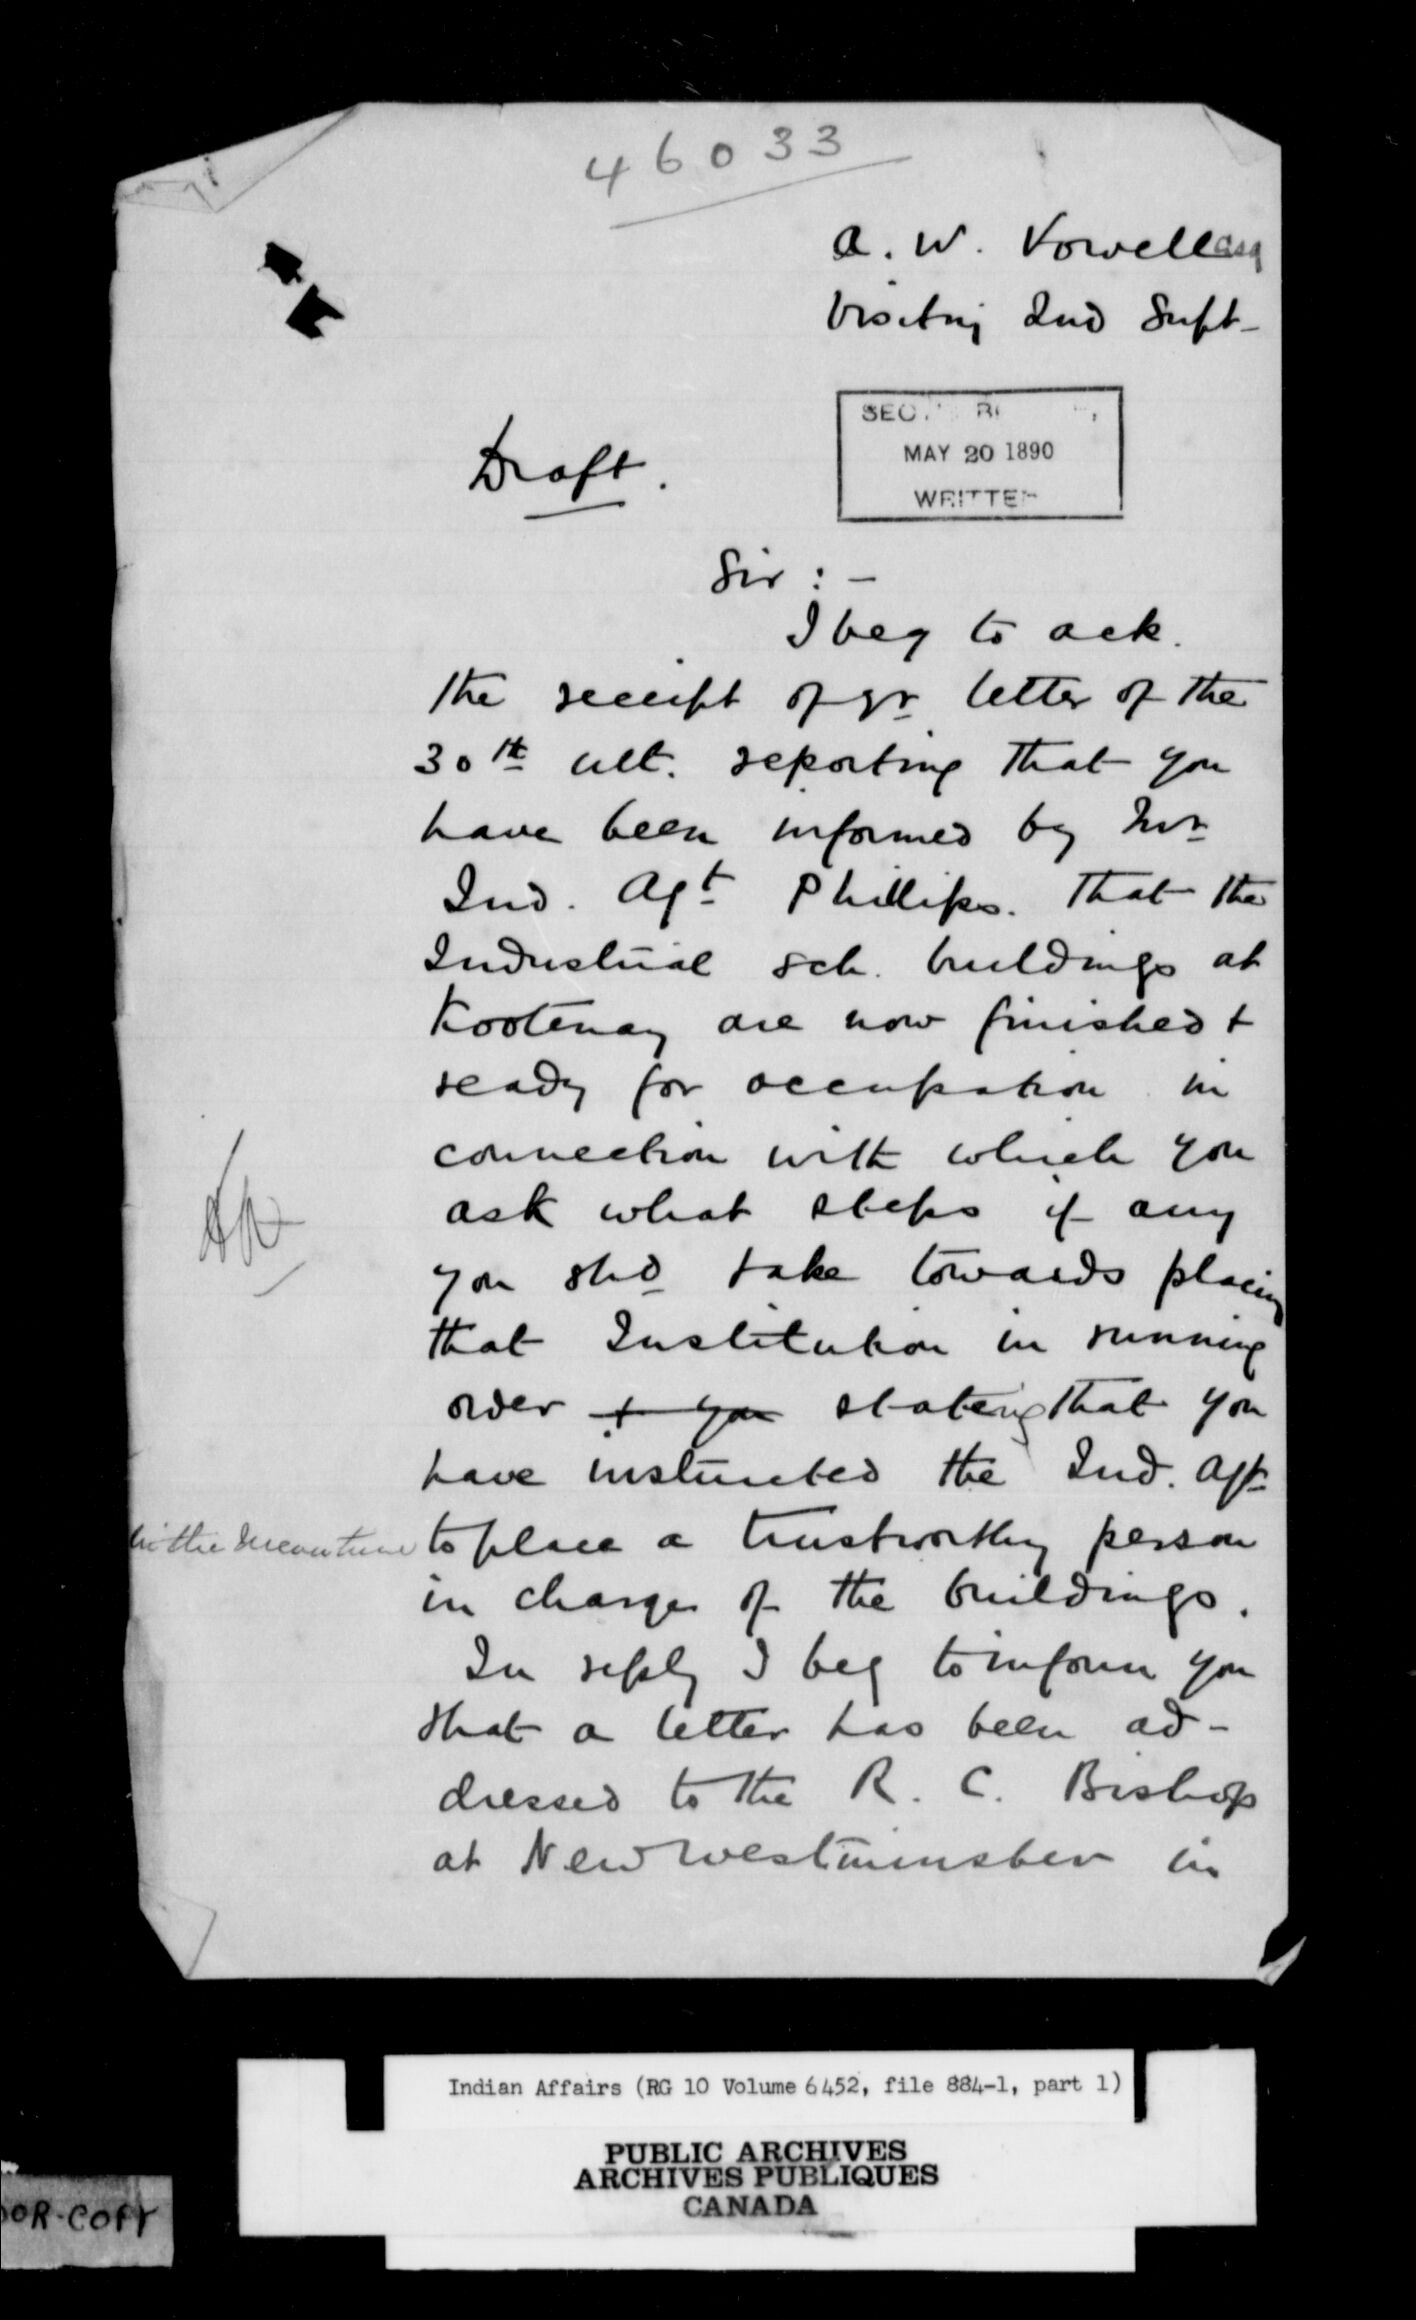 46033
A. W. Vowell Esq
Visiting Ind Supt-
Draft.
SEC
MAY 20 1890
WRITTEN
Sir : -
I beg to ack.
the receipt of yr letter of the
30th ult. reporting that you
have been informed by Mr
Ind. Agt Phillipps. that the
Industrial sch. buildings at
Kootenay are now finished +
ready for occupation in
connection with which you
ask what steps if any
you shd take towards placing
that Institution in running
order + you stating that you
have instructed the Ind. Agt
in the meantime to place a trustworthy person
in charge of the buildings.
In reply I beg to inform you
that a letter has been ad-
dressed to the R. C. Bishop
at New Westminster in
Indian Affairs (RG 10 Volume 6452, file 884-1, part 1)
PUBLIC ARCHIVES
ARCHIVES PUBLIQUES
CANADA
OOR-COPY